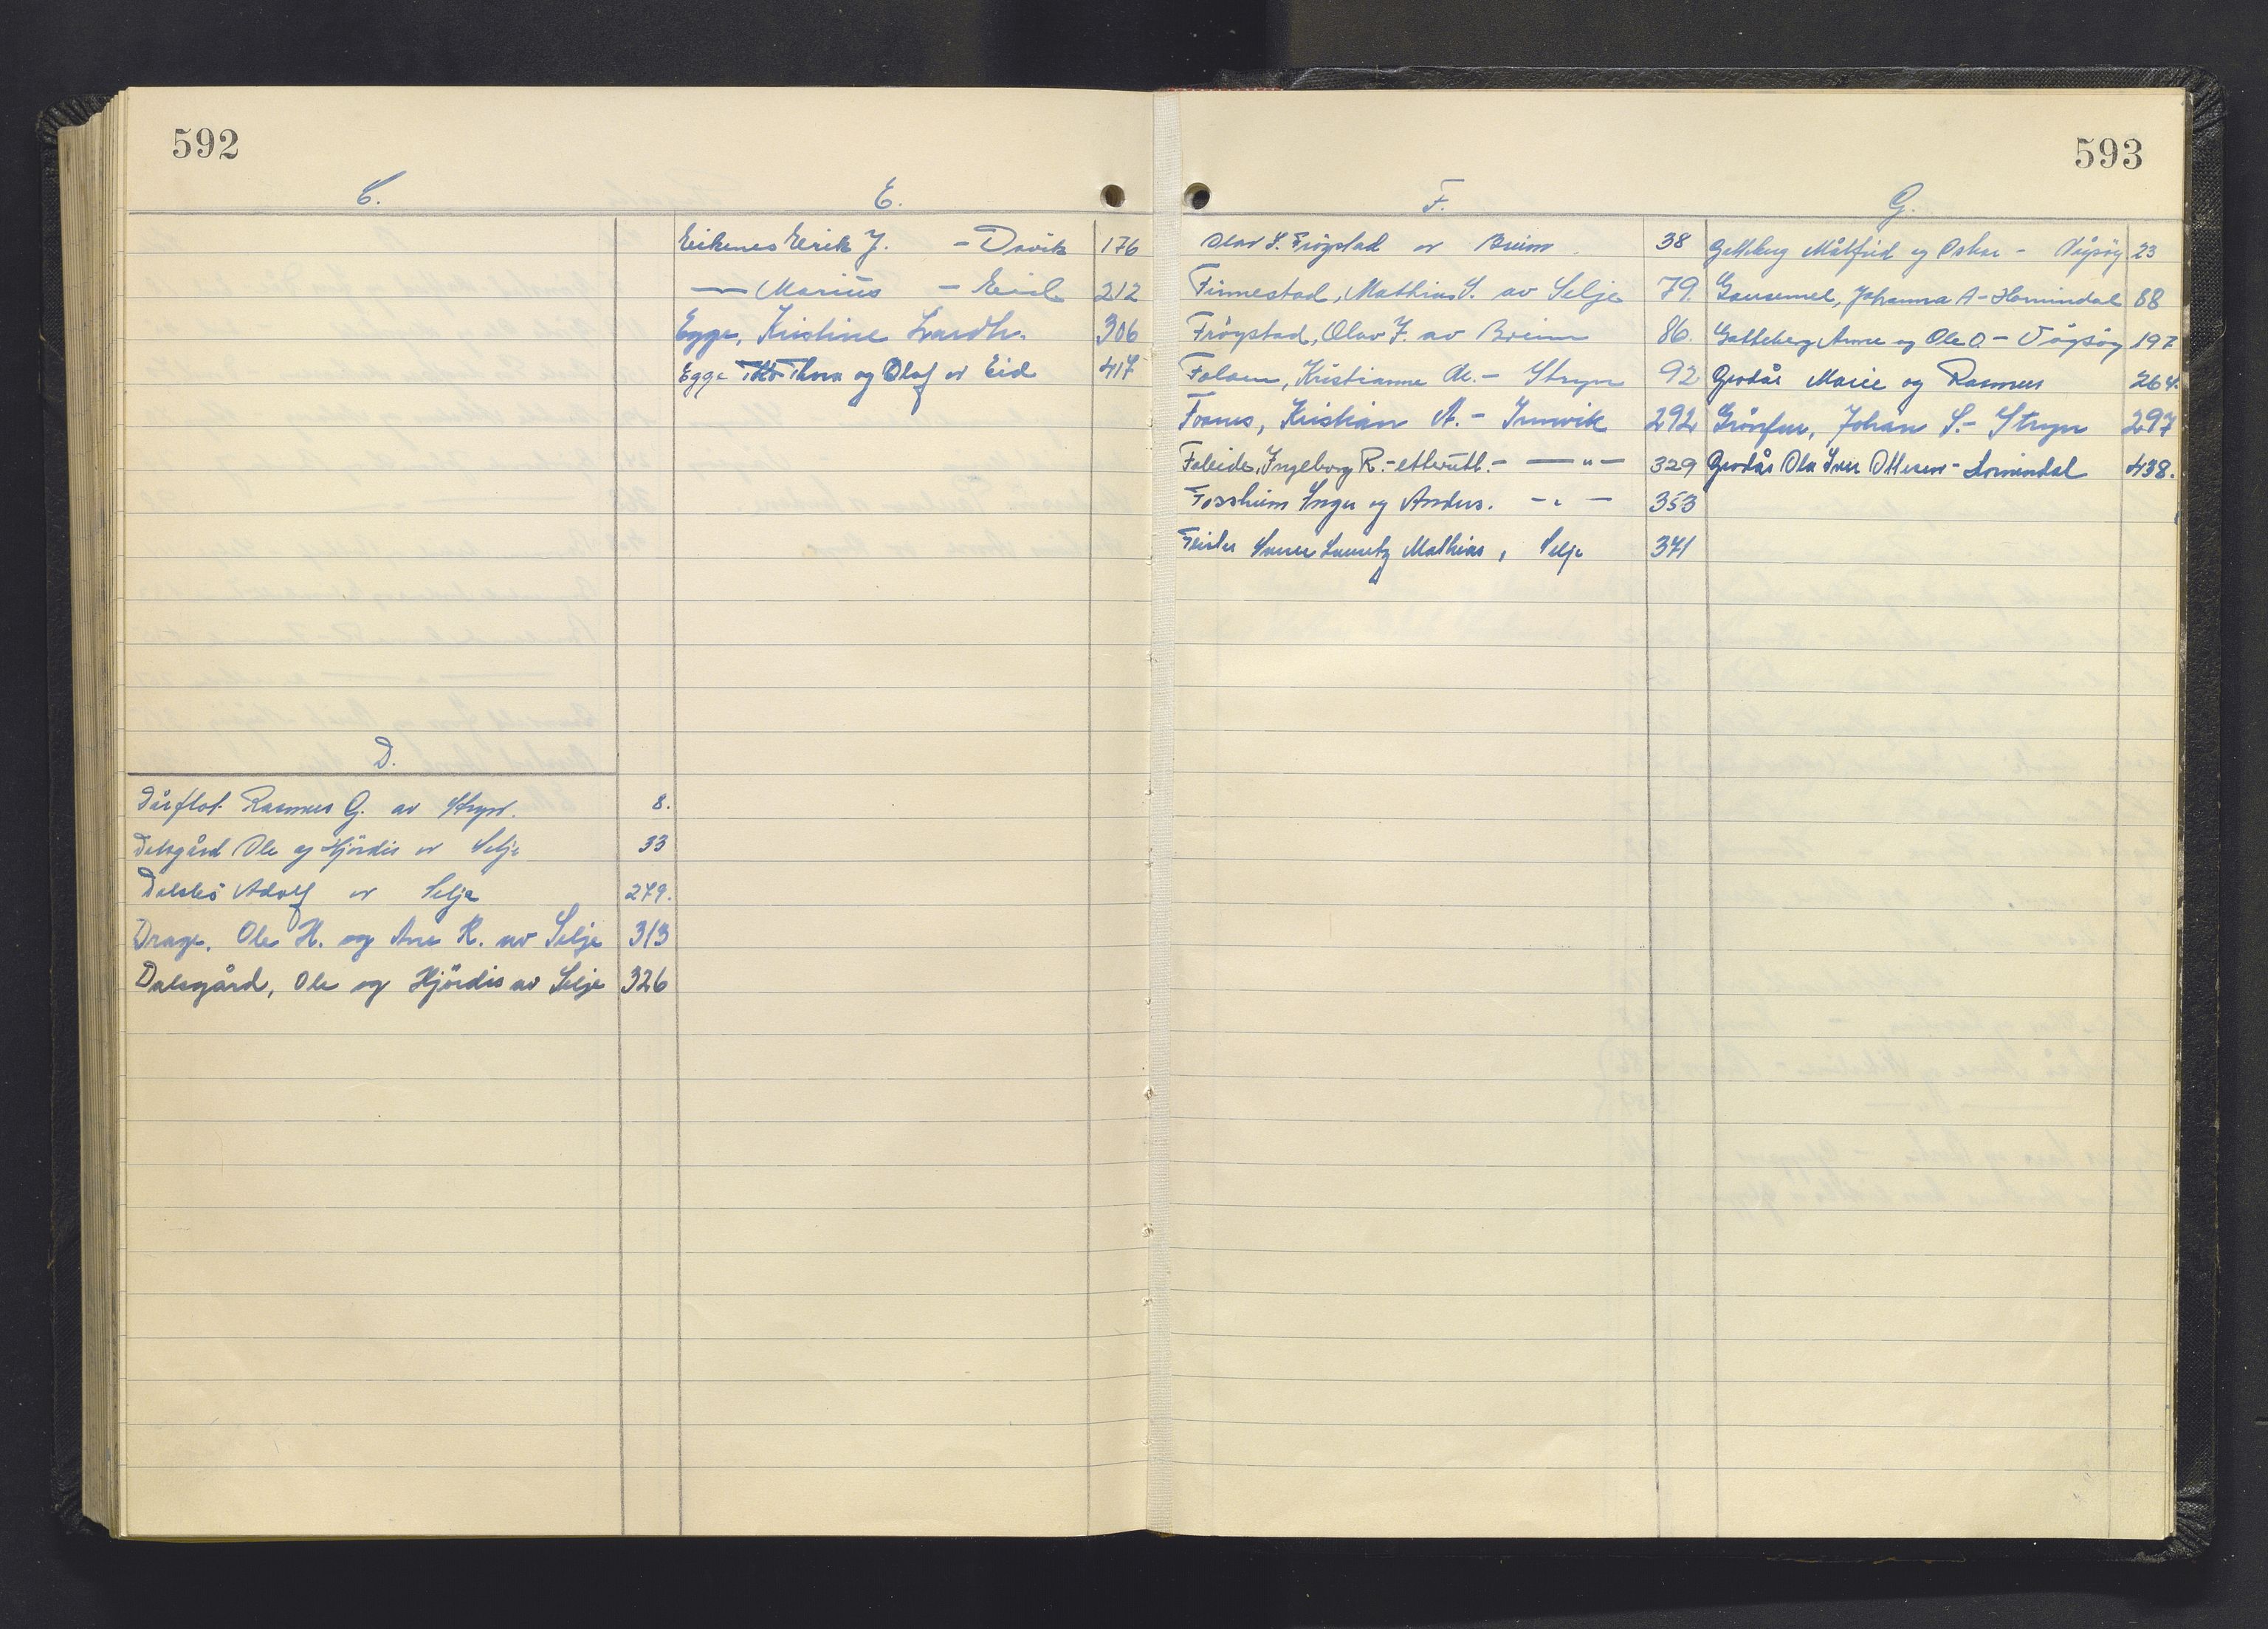 592
C.
D.
Dårflot Rasmus G. av Stryn. 8.
Dalsgård Ole og Hjördis av Selje 33
Dalsbö Adolf av Selje 279.
Drage, Ole H. og Ane K. av Selje 313
Dalsgård, Ole og Hjördis av Selje 326
E.
Eikenes Eirik J. - Davik 176
— Marius - Eid 212
Egge, Kristine Lardh. 306
Egge Thora og Olaf av Eid 417
593
F.
Olav J. Fröystad av Breim 38
Finnestad, Mathias S. av Selje 79.
Fröystad, Olav J. av Breim 86.
Folven, Kristianne - Stryn 92
Foanes, Kristian A. - Innvik 292
Faleide, Ingeborg R. - etterutl. - — " — 329
Fossheim Inger og Anders. - " — 353
Lauritz Mathias, Selje 371
G.
Gotteberg Målfrid og Oskar - Vågsöy 23
Gausemel, Johanna A - Hornindal 88
Gotteberg Anne og Ole O. - Vågsöy 197
Grodås Marie og Rasmus 264.
Johan S. - Stryn 297
Grodås Ola Iver Ottesen - Hornindal 438.